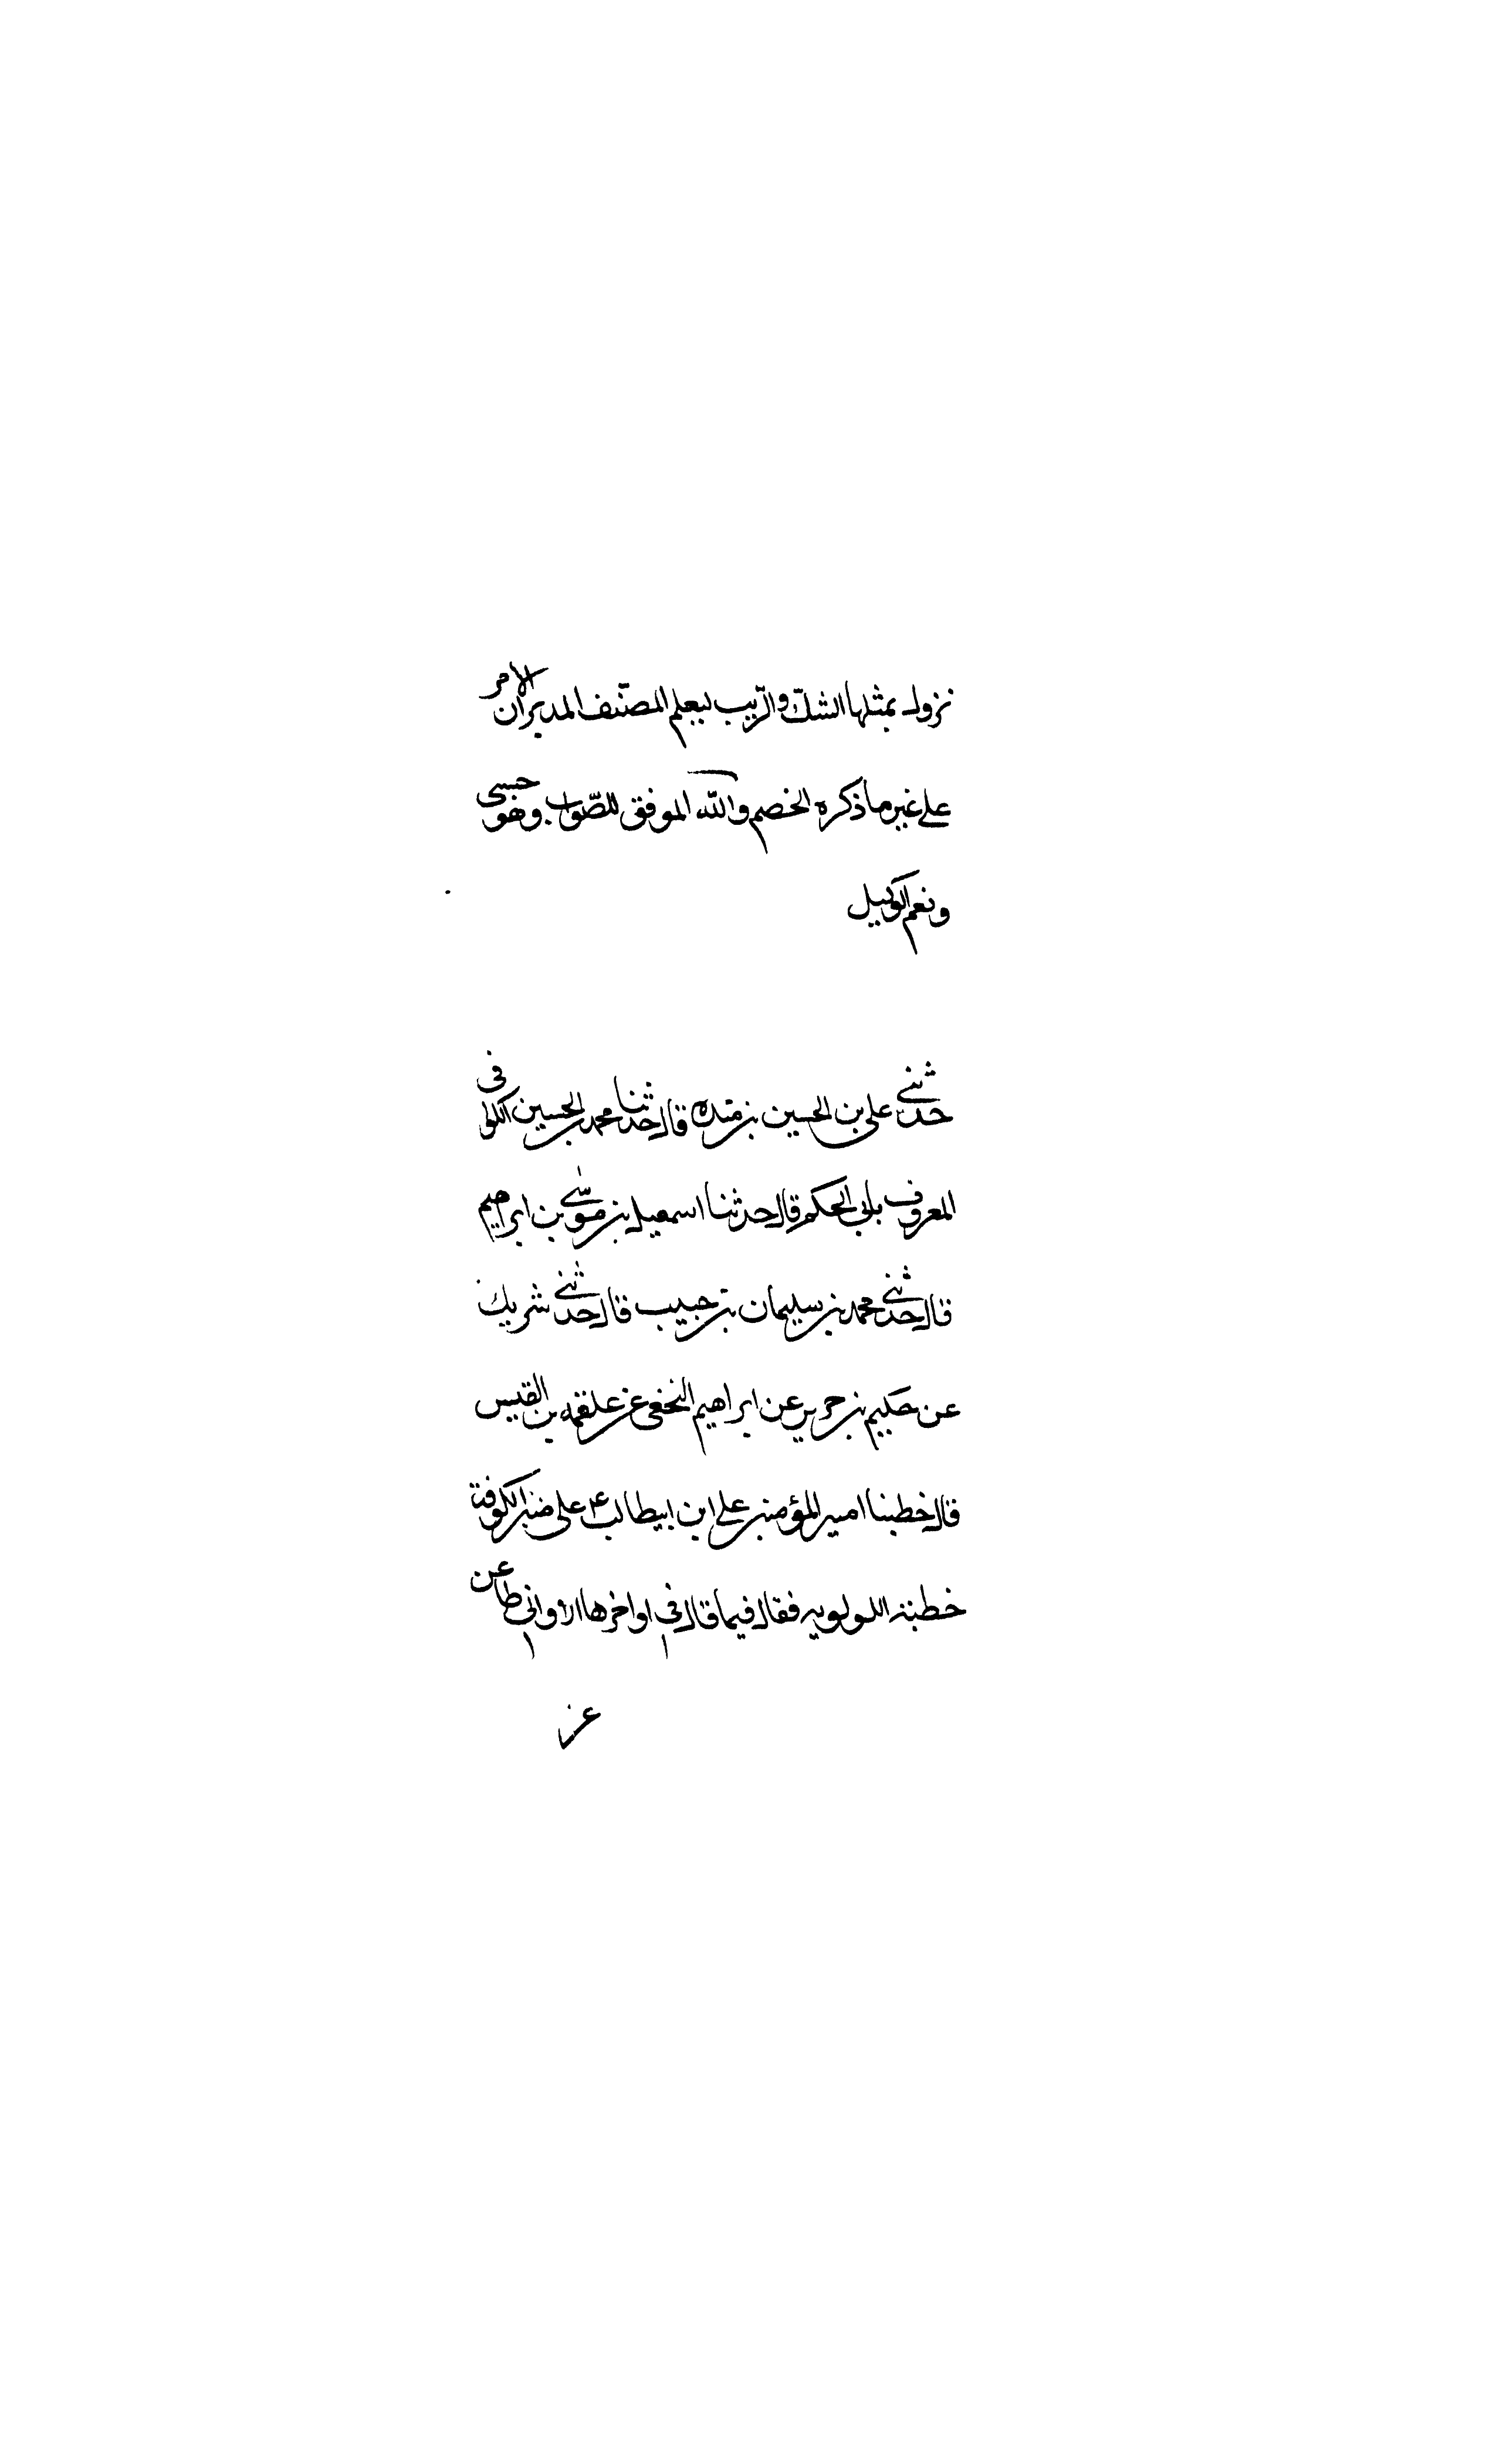 نزول بمثلها الشكّ والرّيب ليعلم المصنّف المدبران الامر
على غير ما ذكره الخصم والله الموفق للصّواب وهو حسبى
ونعم الوكيل
حدثنى على بن الحسين بن منده قال حدثنا محمد بن الحسين الكوفى
المعروف بابى الحكم قال حدثنا اسمعيل بن موسى بن ابرهيم
قال حدثنى محمد بن سليمان بن حبيب قال حدثنى شريك
عن حكيم بن جرير عن ابراهيم النخعى عن علقمه بن القيس
قال خطبنا امير المؤمنين على ابن ابيطالب ع على منبر الكوفة
خطبته اللولويه فقال فيما قال فى اواخرها الا وانى ظاعن
عن